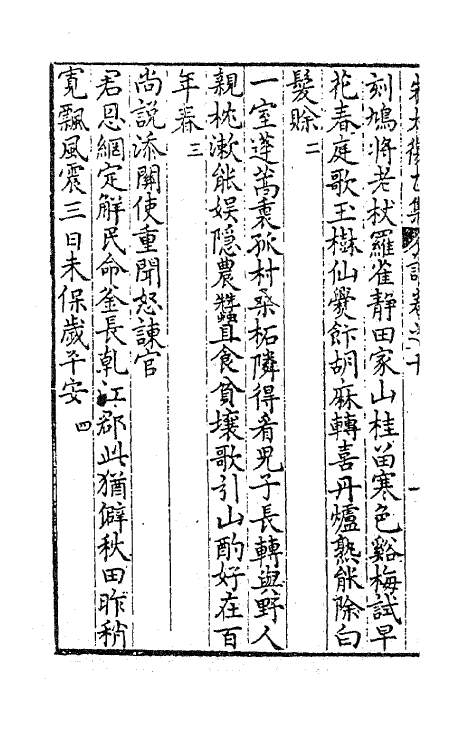 朱太復乙集詩卷之十 一
刻鳩將老杖羅雀靜田家山桂留寒色谿梅試早
花春庭歌玉樹仙爨飰胡麻轉喜丹爐熟能除白
髮賒 二
一室蓬蒿裏孤村桑柘隣得看兒子長轉與野人
親枕漱能娛隱農蠶且食貧壤歌引山酌好在百
年春 三
尚說添關使重聞怒諫官
君恩網定解民命釜長乾江郡此猶僻秋田昨稍
寛飄風震三日未保歲平安 四